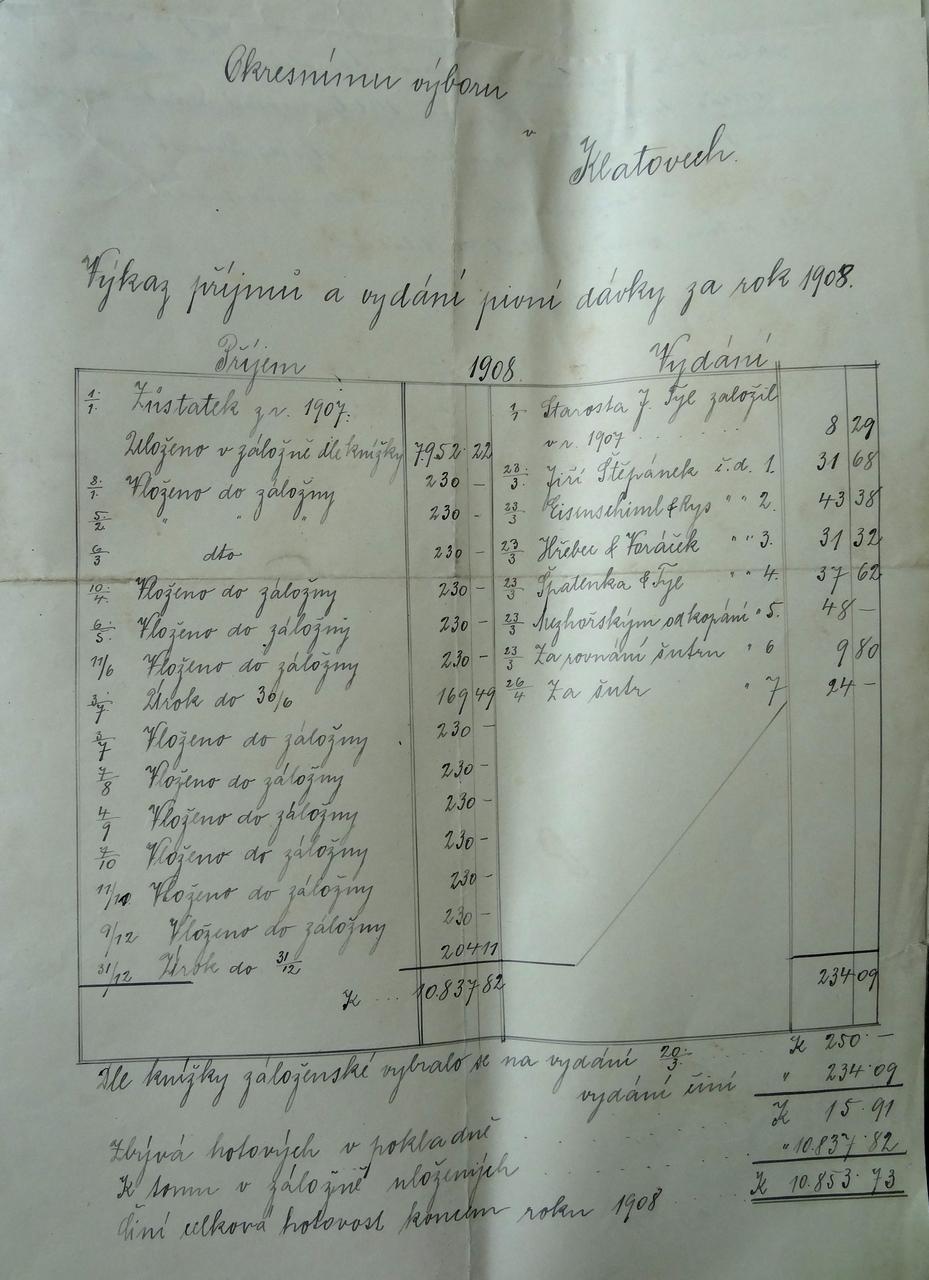 Okresnímu výboru
v
Klatovech.
Výkaz příjmů a vydání pivní dávky za rok 1908.
Příjem 1908. Vydání
1/1. Zůstatek z r. 1907: 1/1 Starosta J. Tyl založil
v r. 1907 . . . . . . 8 29
Uloženo v záložně dle knížky 7952 22 23/3. Jiří Štěpánek č.d. 1. 31 68
8/1. Vloženo do záložny 230 – 23/3 Eisenschiml & Rys " " 2. 43 38
5/2 " " " 230 – 23/3 Hřeber & Voráček " " 3. 31 32
6/3 dto 230 – 23/3 Špatenka & Tyl " " 4. 37 62
10/4. Vloženo do záložny 230 – 23/3 odkopání " 5. 48 –
6/5. Vloženo do záložny 230 – 23/3 Za rovnání šutru " 6 9 80
11/6 Vloženo do záložny 230 – 26/4 Za šutr " 7 24 –
3/7. Úrok do 30/6 169 49
3/7 Vloženo do záložny 230 –
7/8 Vloženo do záložny 230 –
4/9 Vloženo do záložny 230 –
7/10 Vloženo do záložny 230 –
11/10 Vloženo do záložny 230 –
9/12 Vloženo do záložny 230 –
31/12 Úrok do 31/12 204 11
K ... 10.837 82 234 09
Dle knížky záloženské vybralo se na vydání 20/3. . . . K 250 –
vydání činí " 234 09
Zbývá hotových v pokladně . . . . . K 15 91
K tomu v záložně uložených . . . . . " 10.837 82
Činí celková hotovost koncem roku 1908 . . . K 10.853 73